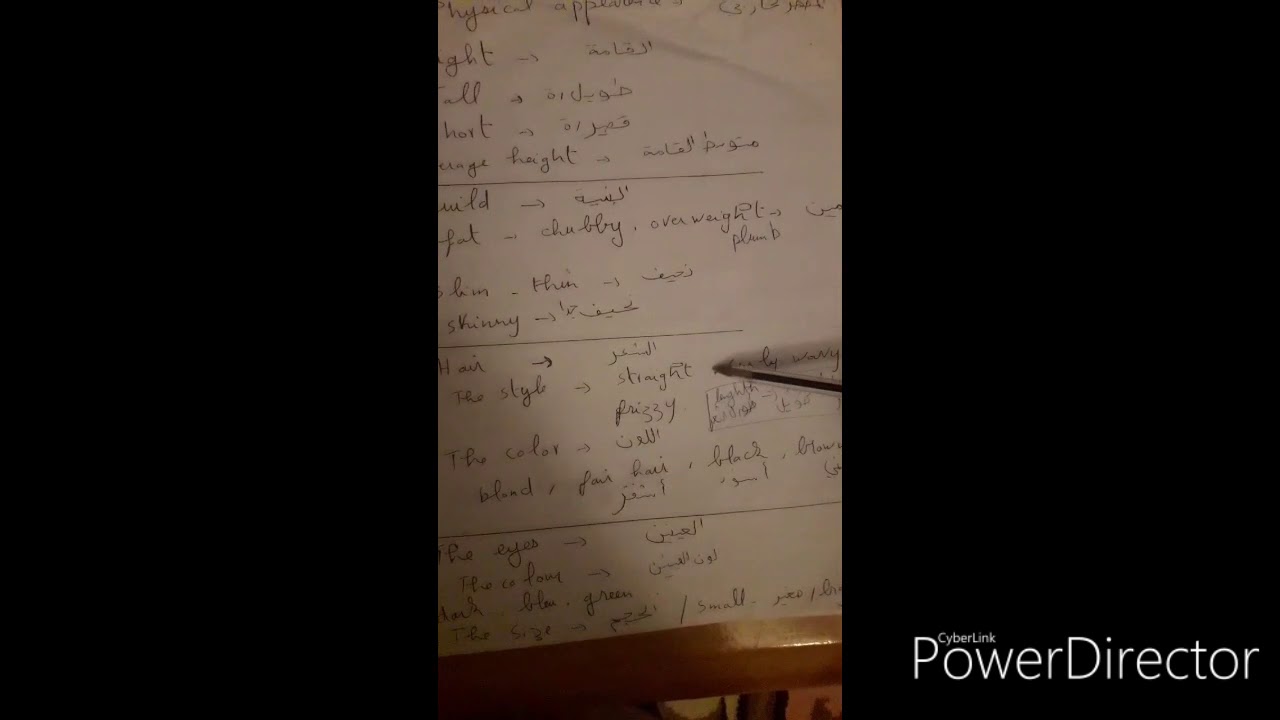 Physical appearance
ight → القامة
all → طويل/ة
hort → قصير/ة
erage height → متوسط القامة
uild → البنية
fat - chubby, overweight → مين
plumb
slim - thin → نحيف
skinny → نحيف جدا
Hair → الشعر
The style → straight curly wavy
frizzy
lenghth
طويل
The color → اللون
blond, fair hair, black, brow
أشقر أسود
The eyes → العينين
The colour → لون العينين
dark, blue, green
The size → الحجم / small - صغير /
CyberLink
PowerDirector